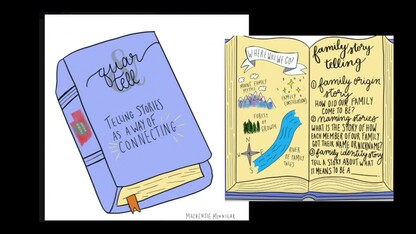 quar
&
tell
TELLING STORIES
AS A WAY OF
CONNECTING
MACKENZIE
WHERE WILL WE GO?
MOUNT FAMILY
FAMILY
CONSTELLATIONS
FOREST
OF
GROWTH
RIVER
OF FAMILY
TALES
N
family story
telling
① family origin
story
HOW DID OUR FAMILY
COME TO BE?
② naming stories
WHAT IS THE STORY OF HOW
EACH MEMBER OF OUR FAMILY
GOT THEIR NAME OR NICKNAME?
③ family identity story
TELL A STORY ABOUT WHAT
IT MEANS TO BE A